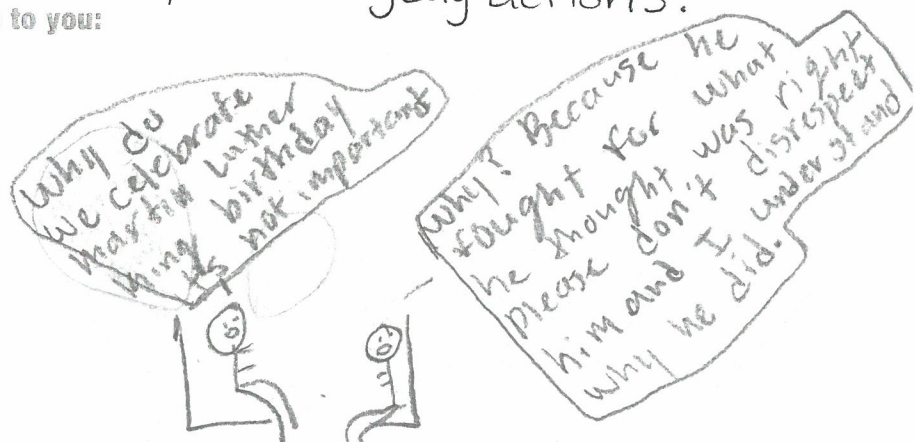 actions.
to you:
Why do
we celebrate
martin luther
king birthday
its not important
Why? Because he
fought for what
he thought was right
please don't disrespect
him and I understand
why he did.